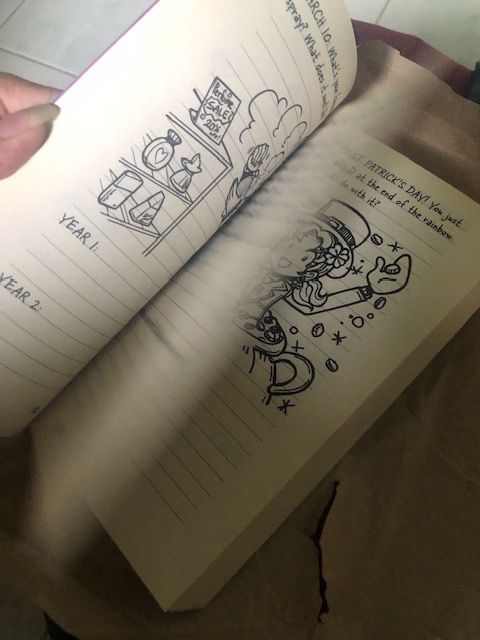 ARCH 10: What's
spray? What does it
Perfume
SALE!
20%
YEAR 1:
YEAR 2:
PATRICK'S DAY! You just
at the end of the rainbow.
do with it?